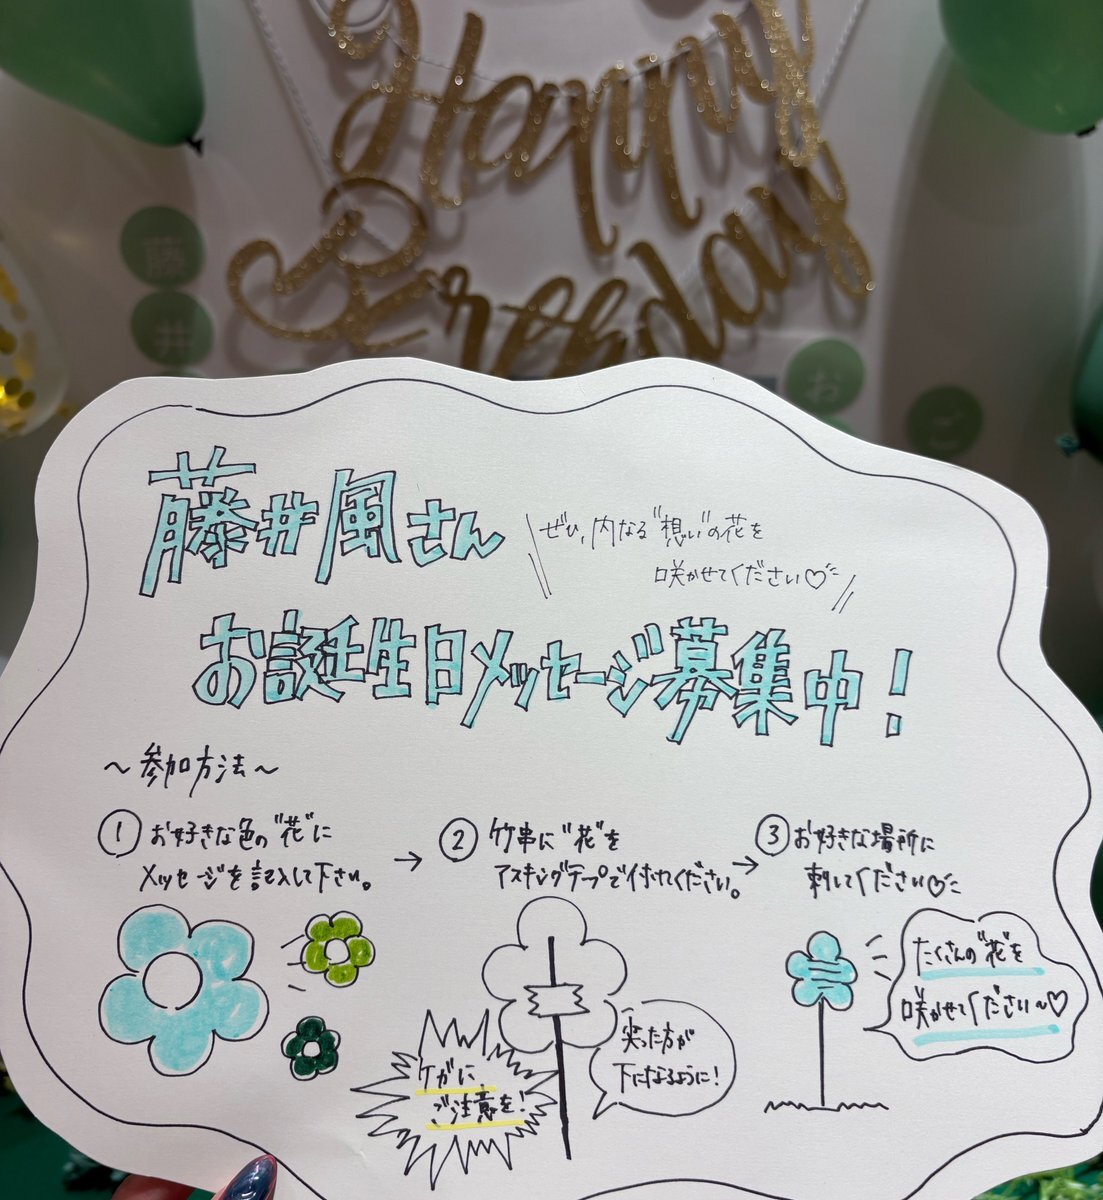 Happy
Breeday
藤
井
お
ご
藤井風さん
ぜひ、内なる"想い"の花を
咲かせてください♡
お誕生日メッセージ募集中!
～参加方法～
① お好きな色の"花"に
メッセージを記入して下さい。
→
② 竹串に"花"を
マスキングテープで付けてください。
→
③ お好きな場所に
刺してください♡
たくさんの"花"を
咲かせてください～♡
尖った方が
下になるように!
ケガに
ご注意を!